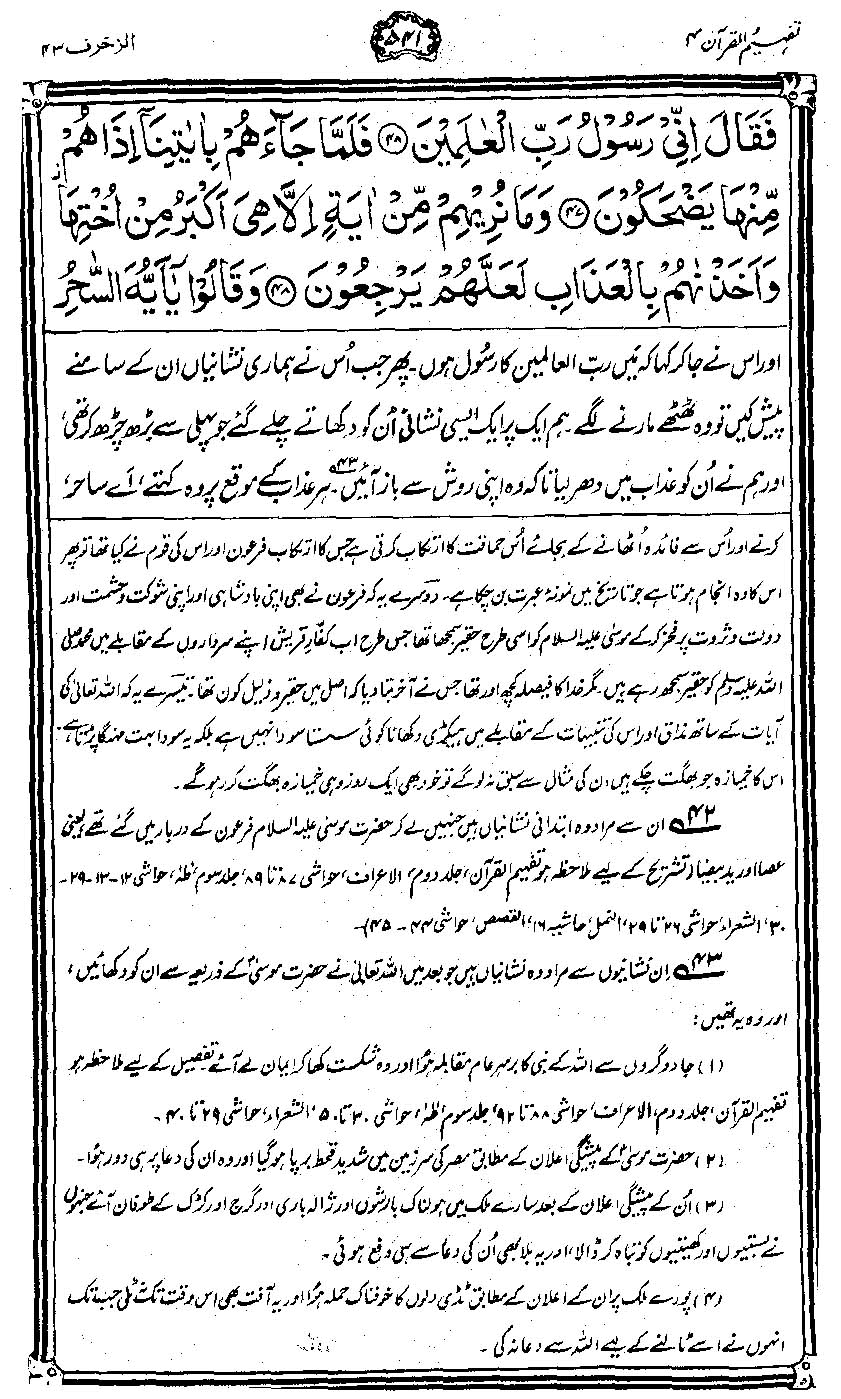 تفہیم القرآن ۴
۵۴۱
الزخرف ۴۳
فَقَالَ اِنِّیْ رَسُوْلُ رَبِّ الْعٰلَمِیْنَ ﴿۴۶﴾ فَلَمَّا جَآءَهُمْ بِاٰیٰتِنَآ اِذَا هُمْ
مِّنْهَا یَضْحَكُوْنَ ﴿۴۷﴾ وَمَا نُرِیْهِمْ مِّنْ اٰیَةٍ اِلَّا هِیَ اَكْبَرُ مِنْ اُخْتِهَا
وَاَخَذْنٰهُمْ بِالْعَذَابِ لَعَلَّهُمْ یَرْجِعُوْنَ ﴿۴۸﴾ وَقَالُوْا یٰۤاَیُّهَ السّٰحِرُ
اور اس نے جا کر کہا کہ میں ربّ العالمین کا رسُول ہوں۔ پھر جب اُس نے ہماری نشانیاں ان کے سامنے
پیش کیں تو وہ ٹھٹھے مارنے لگے۔ ہم ایک پر ایک ایسی نشانی اُن کو دکھاتے چلے گئے جو پہلی سے بڑھ چڑھ کر تھی،
اور ہم نے اُن کو عذاب میں دھر لیا تاکہ وہ اپنی روِش سے باز آئیں۔ ۴۳ ہر عذاب کے موقع پر وہ کہتے، اَے ساحر،
کرنے اور اُس سے فائدہ اُٹھانے کے بجائے اُس حماقت کا ارتکاب کرتی ہے جس کا ارتکاب فرعون اور اس کی قوم نے کیا تھا تو پھر
اس کا وہ انجام ہوتا ہے جو تاریخ میں نمونۂ عبرت بن چکا ہے۔ دوسرے یہ کہ فرعون نے بھی اپنی بادشاہی اور اپنی شوکت و حشمت اور
دولت و ثروت پر فخر کر کے موسیٰ علیہ السلام کو اسی طرح حقیر سمجھا تھا جس طرح اب کفارِ قریش اپنے سرداروں کے مقابلے میں محمد صلی
اللہ علیہ وسلم کو حقیر سمجھ رہے ہیں۔ مگر خدا کا فیصلہ کچھ اور تھا جس نے آخر بتا دیا کہ اصل میں حقیر و ذلیل کون تھا۔ تیسرے یہ کہ اللہ تعالیٰ کی
آیات کے ساتھ مذاق اور اس کی تنبیہات کے مقابلے میں ہیکڑی دکھانا کوئی سستا سودا نہیں ہے بلکہ یہ سودا بہت مہنگا پڑتا ہے۔
اس کا خمیازہ جو بھگت چکے ہیں اُن کی مثال سے سبق نہ لو گے تو خود بھی ایک روز وہی خمیازہ بھگت کر رہو گے۔
۴۲ ان سے مراد وہ ابتدائی نشانیاں ہیں جنہیں لے کر حضرت موسیٰ علیہ السلام فرعون کے دربار میں گئے تھے، یعنی
عصا اور یدِ بیضا (تشریح کے لیے ملاحظہ ہو تفہیم القرآن، جلد دوم، الاعراف، حواشی ۸۷ تا ۸۹، جلد سوم، طٰہٰ، حواشی ۱۲-۱۳-۲۹-
۳۰، الشعراء، حواشی ۲۶ تا ۲۹، النمل، حاشیہ ۱۶، القصص، حواشی ۴۴ - ۴۵)۔
۴۳ اِن نشانیوں سے مراد وہ نشانیاں ہیں جو بعد میں اللہ تعالیٰ نے حضرت موسیٰؑ کے ذریعہ سے ان کو دکھائیں،
اور وہ یہ تھیں:
(۱) جادوگروں سے اللہ کے نبی کا برسرِ عام مقابلہ ہوا اور وہ شکست کھا کر ایمان لے آئے۔ تفصیل کے لیے ملاحظہ ہو
تفہیم القرآن، جلد دوم، الاعراف، حواشی ۸۸ تا ۹۲، جلد سوم، طٰہٰ، حواشی ۳۰ تا ۵۰، الشعراء، حواشی ۲۹ تا ۴۰۔
(۲) حضرت موسیٰؑ کے پیشگی اعلان کے مطابق مصر کی سرزمین میں شدید قحط برپا ہو گیا اور وہ ان کی دعا پر ہی دور ہوا۔
(۳) اُن کے پیشگی اعلان کے بعد سارے ملک میں ہولناک بارشوں اور ژالہ باری اور گرج اور کڑک کے طوفان آئے جنہوں
نے بستیوں اور کھیتیوں کو تباہ کر ڈالا، اور یہ بلا بھی اُن کی دعا سے ہی دفع ہوئی۔
(۴) پورے ملک پر ان کے اعلان کے مطابق ٹڈی دلوں کا خوفناک حملہ ہوا اور یہ آفت بھی اس وقت تک نہ ٹلی جب تک
انہوں نے اسے ٹالنے کے لیے اللہ سے دعا نہ کی۔